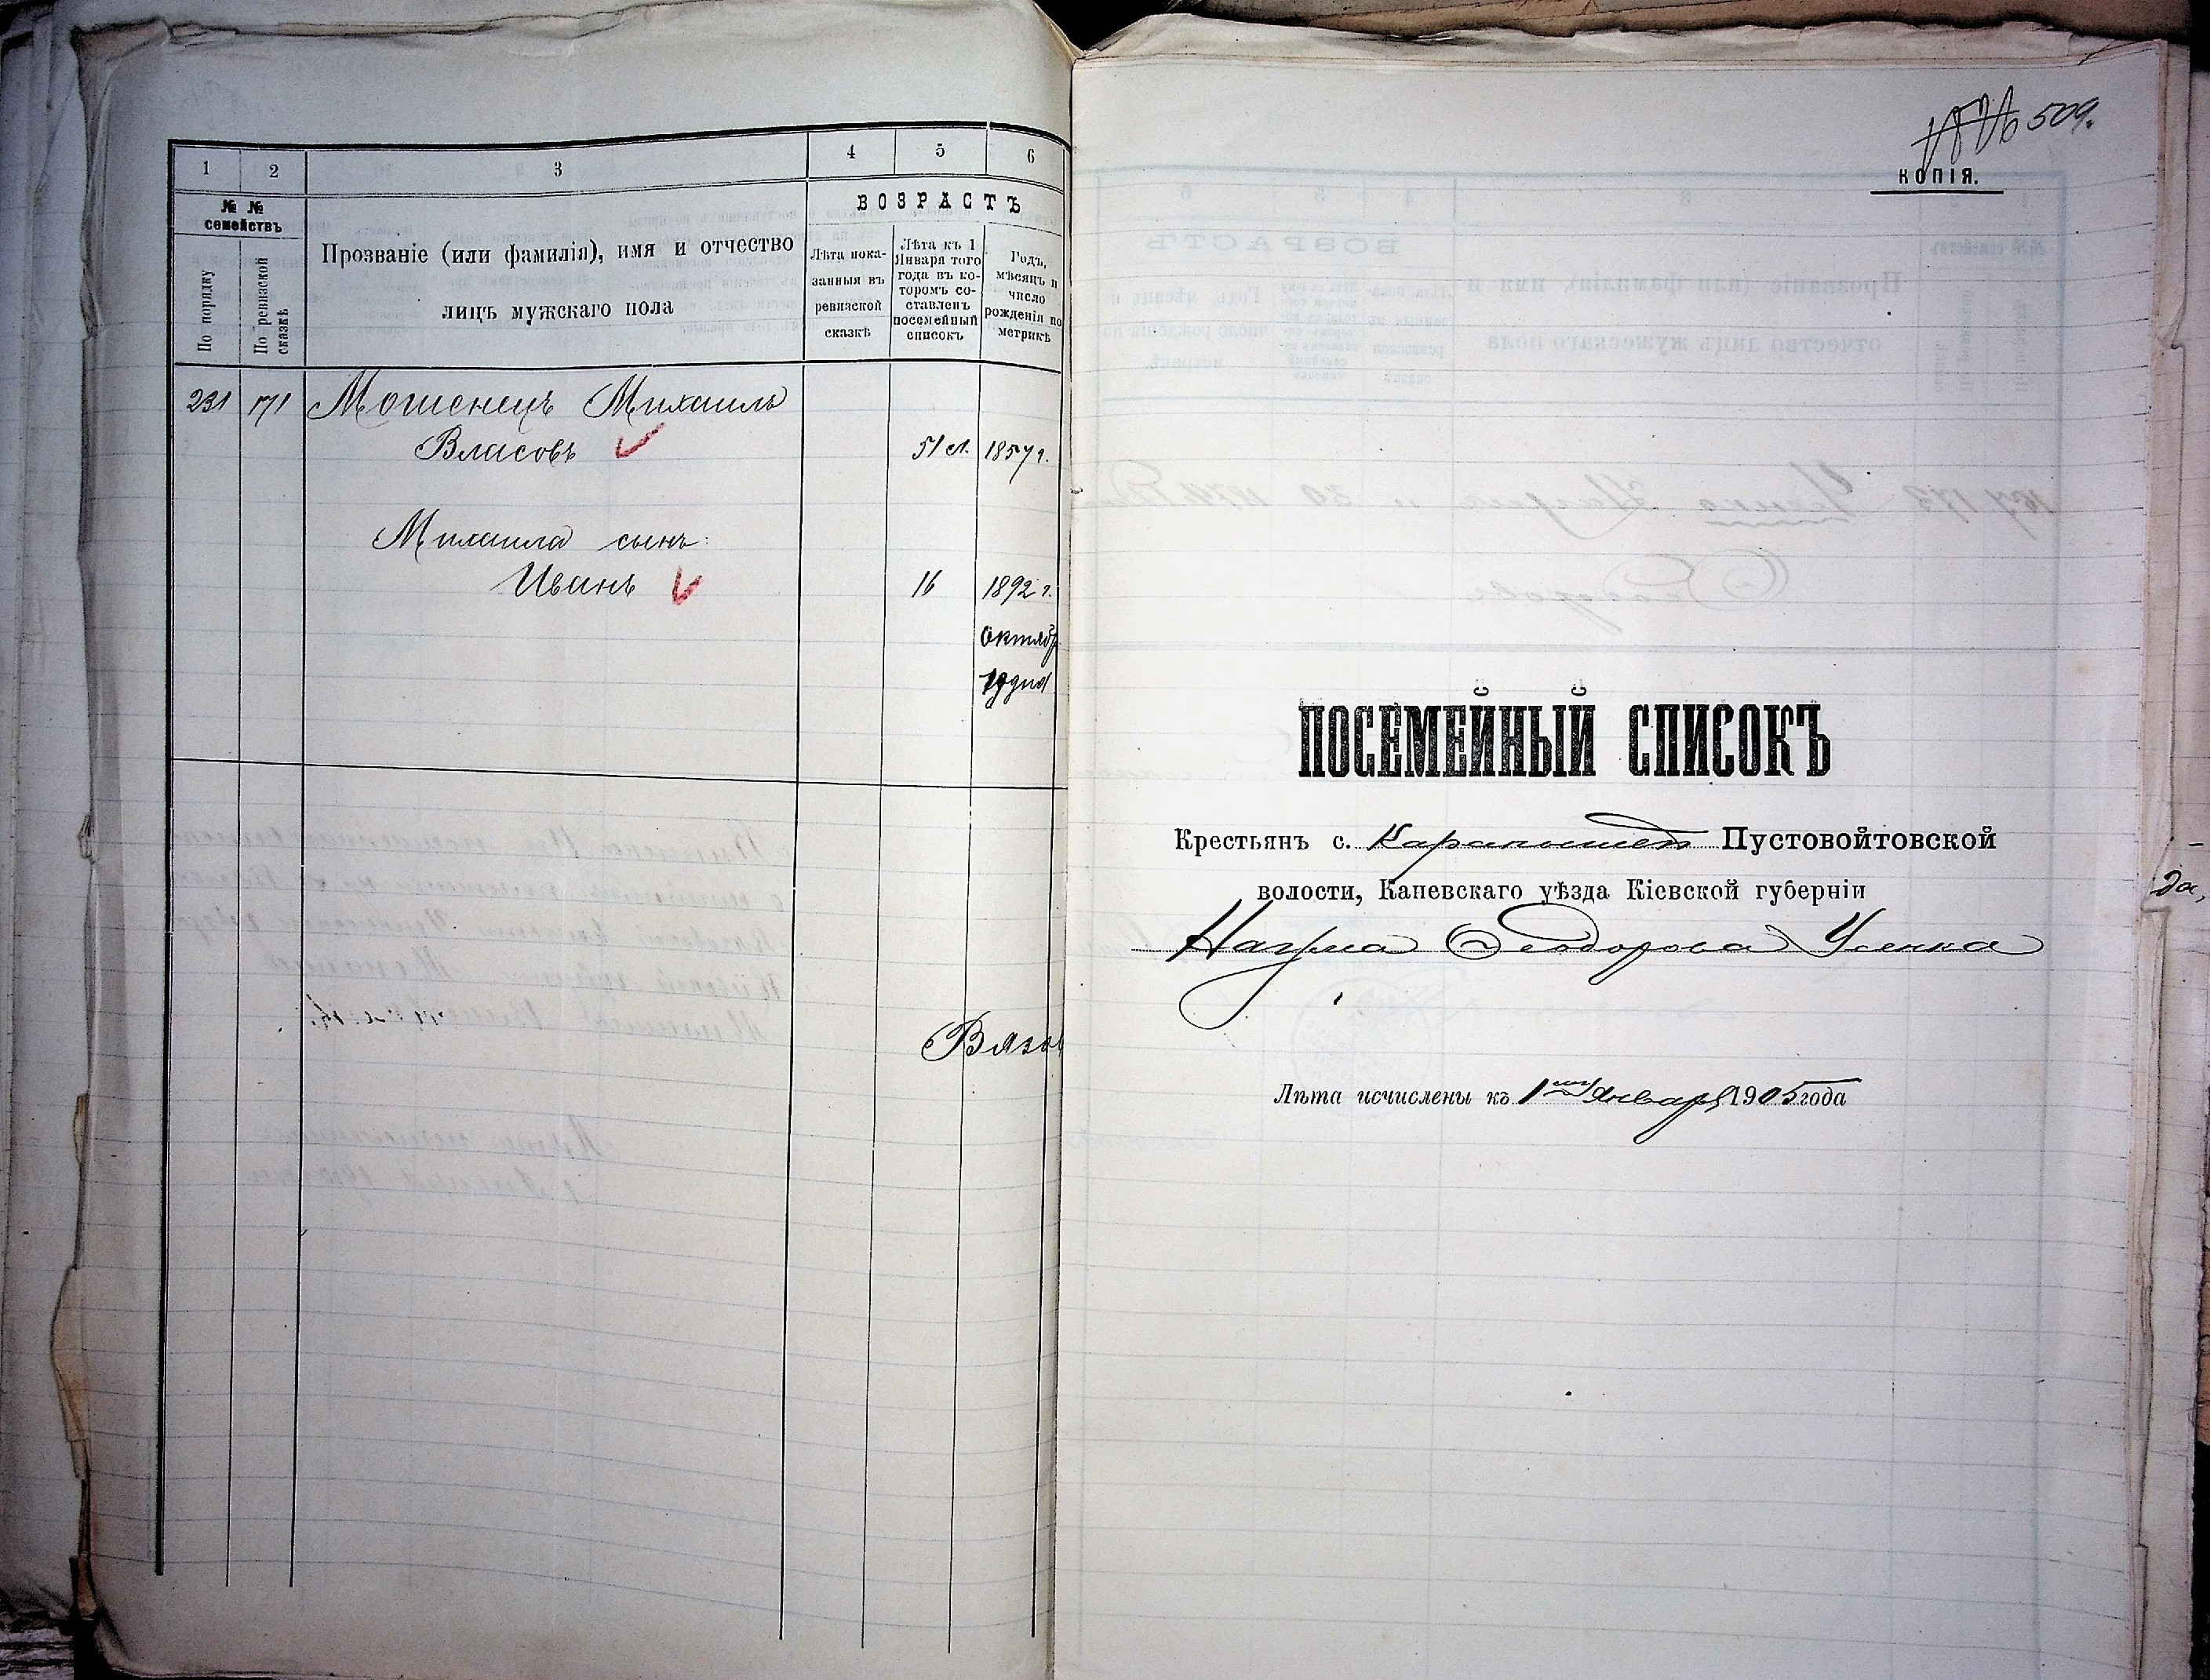 1 2 3 4 5 6
№ № семействъ
По порядку
По ревизской сказкѣ
Прозваніе (или фамилія), имя и отчество
лицъ мужскаго пола
ВОЗРАСТЪ
Лѣта пока-
занныя въ
ревизской
сказкѣ
Лѣта къ 1
Января того
года въ ко-
торомъ со-
ставленъ
посемейный
списокъ
Годъ,
мѣсяцъ и
число
рожденія по
метрикѣ
231 171 Мошенецъ Михаилъ
Власовъ 51 л. 1857 г.
Михаила сынъ:
Иванъ 16 1892 г.
Октябр
19 дня
509.
КОПІЯ.
ПОСЕМЕЙНЫЙ СПИСОКЪ
Крестьянъ с. Карапышей Пустовойтовской
волости, Каневскаго уѣзда Кіевской губерніи
Наума Феодорова Усенка
Лѣта исчислены къ 1 Января 1905 года